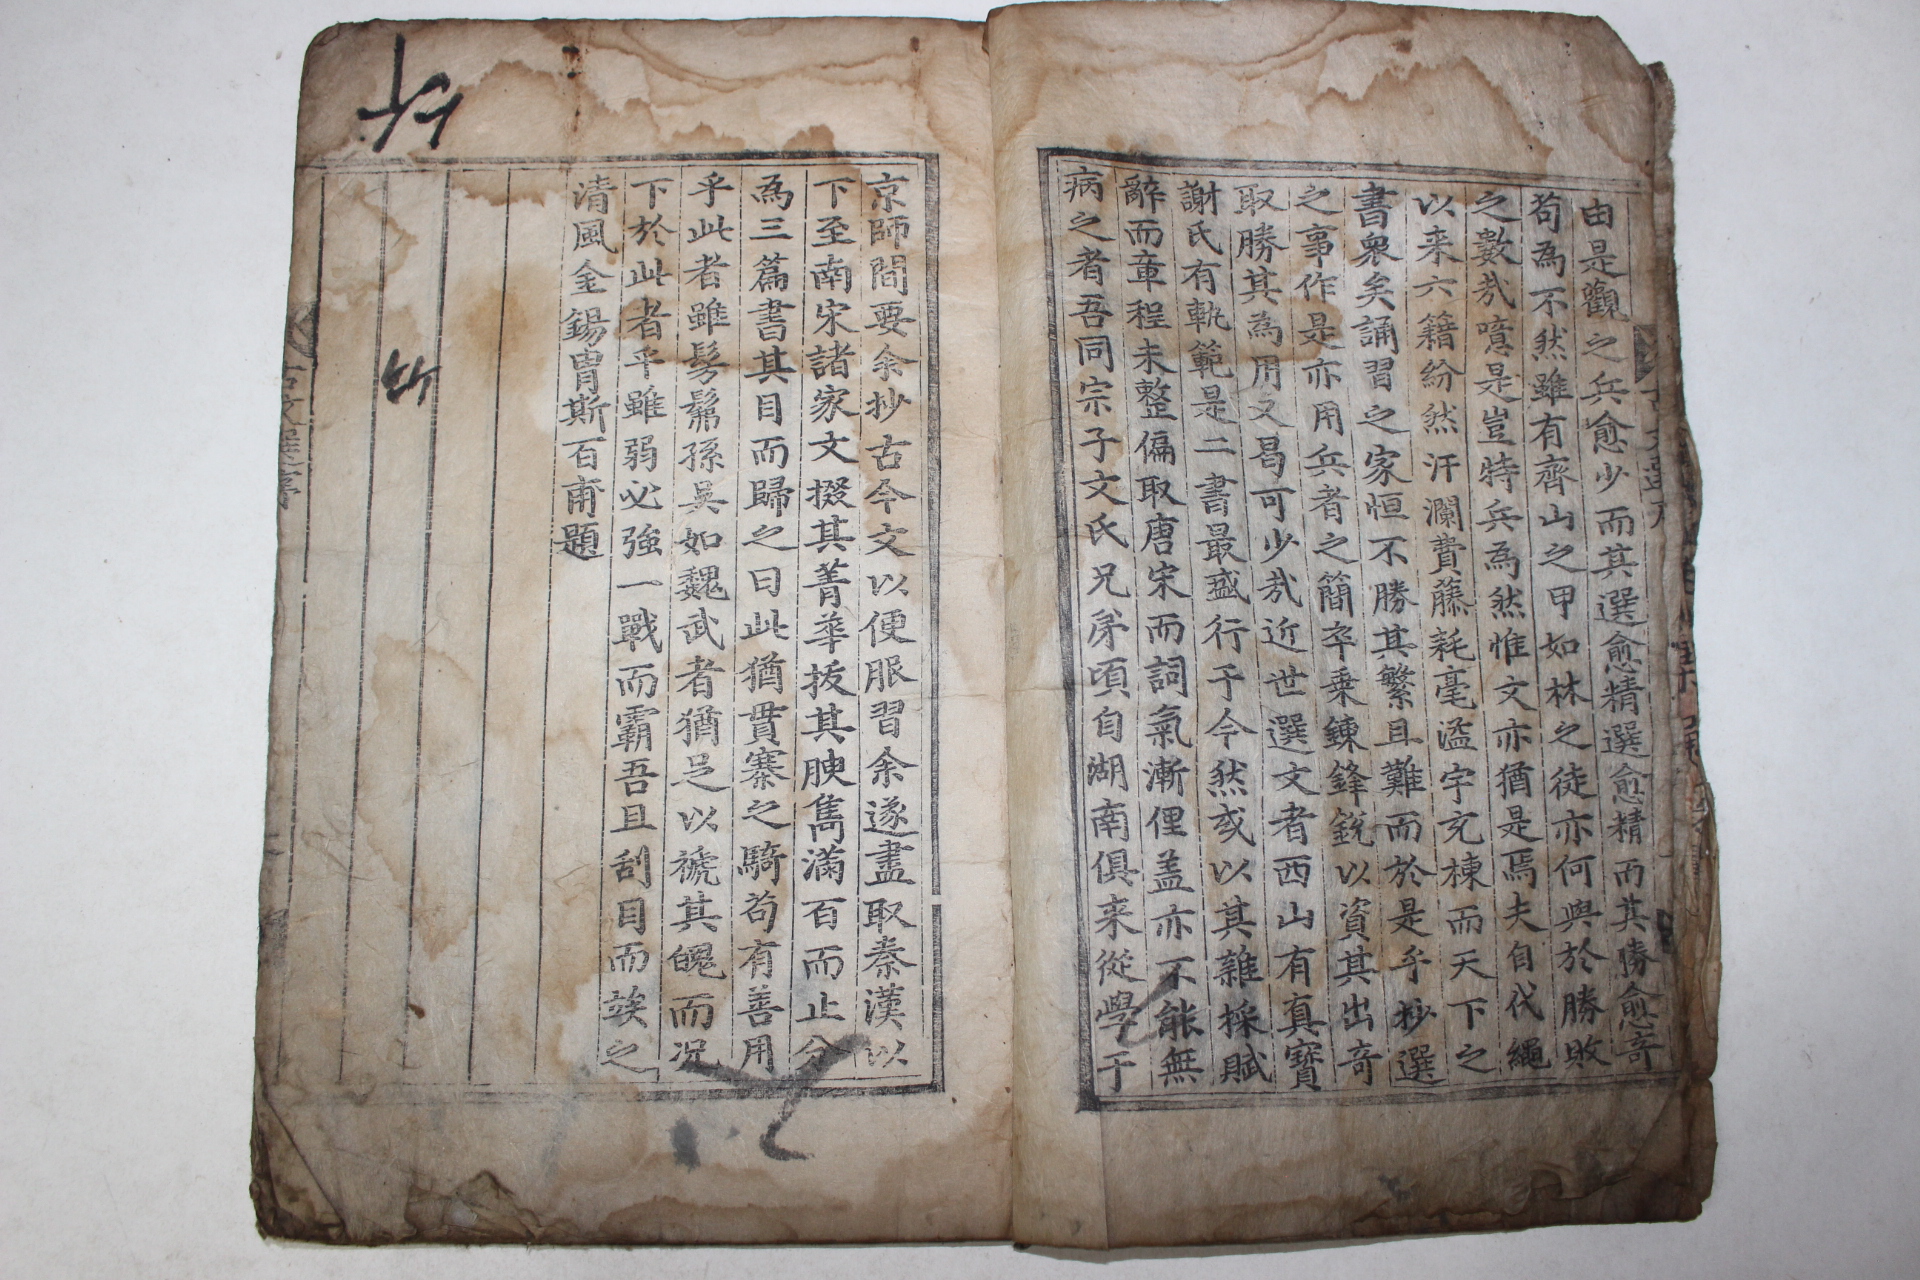 由是觀之兵愈少而其選愈精選愈精而其勝愈奇
苟為不然雖有齊山之甲如林之徒亦何與於勝敗
之數㢤噫是豈特兵為然惟文亦猶是焉夫自代繩
以来六籍紛然汗瀾費藤耗毫溢宇充棟而天下之
書衆矣誦習之家恒不勝其繁且難而於是乎抄選
之事作是亦用兵者之簡卒乗鍊鋒銳以資其出奇
取勝其為用文曷可少㢤近世選文者西山有真寳
謝氏有軌範是二書最盛行于今然或以其雜採賦
辭而章程未整偏取唐宋而詞氣漸俚盖亦不能無
病之者吾同宗子文氏兄弟頃自湖南俱来從學于
京師間要余抄古今文以便服習余遂盡取秦漢以
下至南宋諸家文掇其菁華拔其腴雋滿百而止分
為三篇書其目而歸之曰此猶貫寨之騎苟有善用
乎此者雖髣髴孫吳如魏武者猶足以褫其魄而况
下於此者乎雖弱必強一戰而霸吾且刮目而竢之
清風金錫胄斯百甫題
古文選序